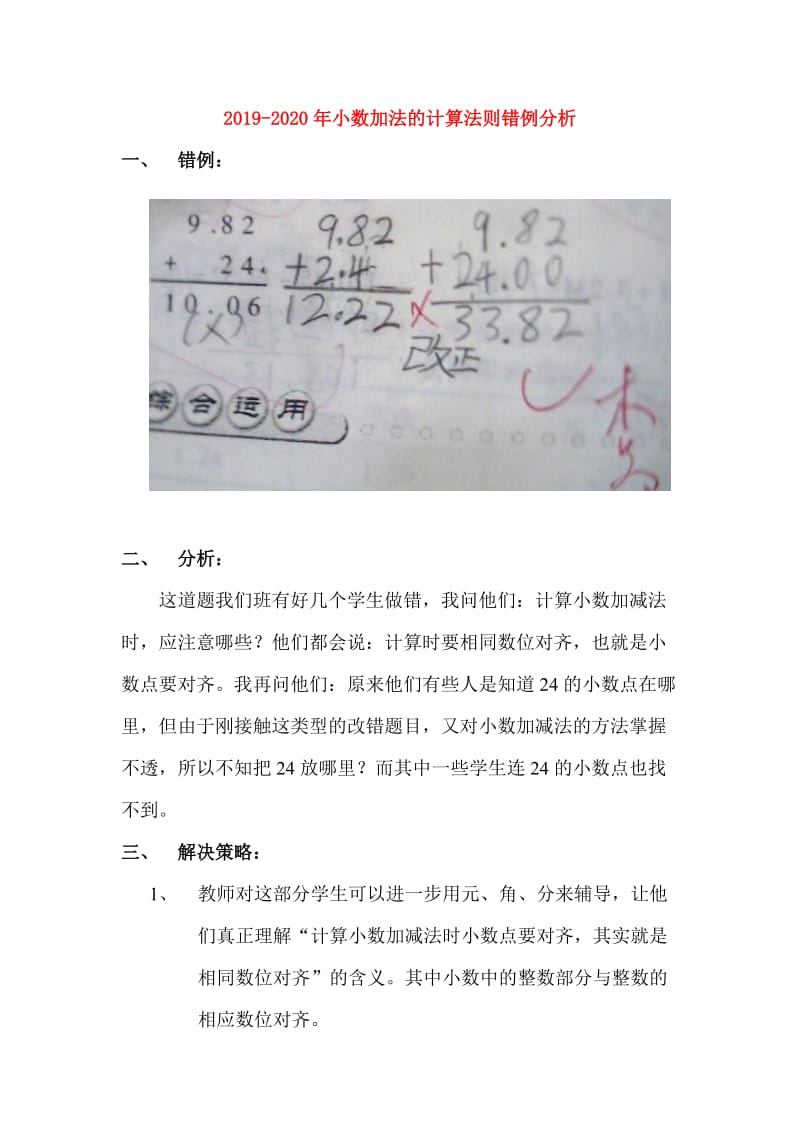 2019-2020年小数加法的计算法则错例分析
一、 错例：
9.82 9.82 9.82
+ 24. +2.4 +24.00
10.06 12.22 × 33.82
(×) 改正
综合运用
二、 分析：
这道题我们班有好几个学生做错，我问他们：计算小数加减法
时，应注意哪些？他们都会说：计算时要相同数位对齐，也就是小
数点要对齐。我再问他们：原来他们有些人是知道 24 的小数点在哪
里，但由于刚接触这类型的改错题目，又对小数加减法的方法掌握
不透，所以不知把 24 放哪里？而其中一些学生连 24 的小数点也找
不到。
三、 解决策略：
1、 教师对这部分学生可以进一步用元、角、分来辅导，让他
们真正理解“计算小数加减法时小数点要对齐，其实就是
相同数位对齐”的含义。其中小数中的整数部分与整数的
相应数位对齐。